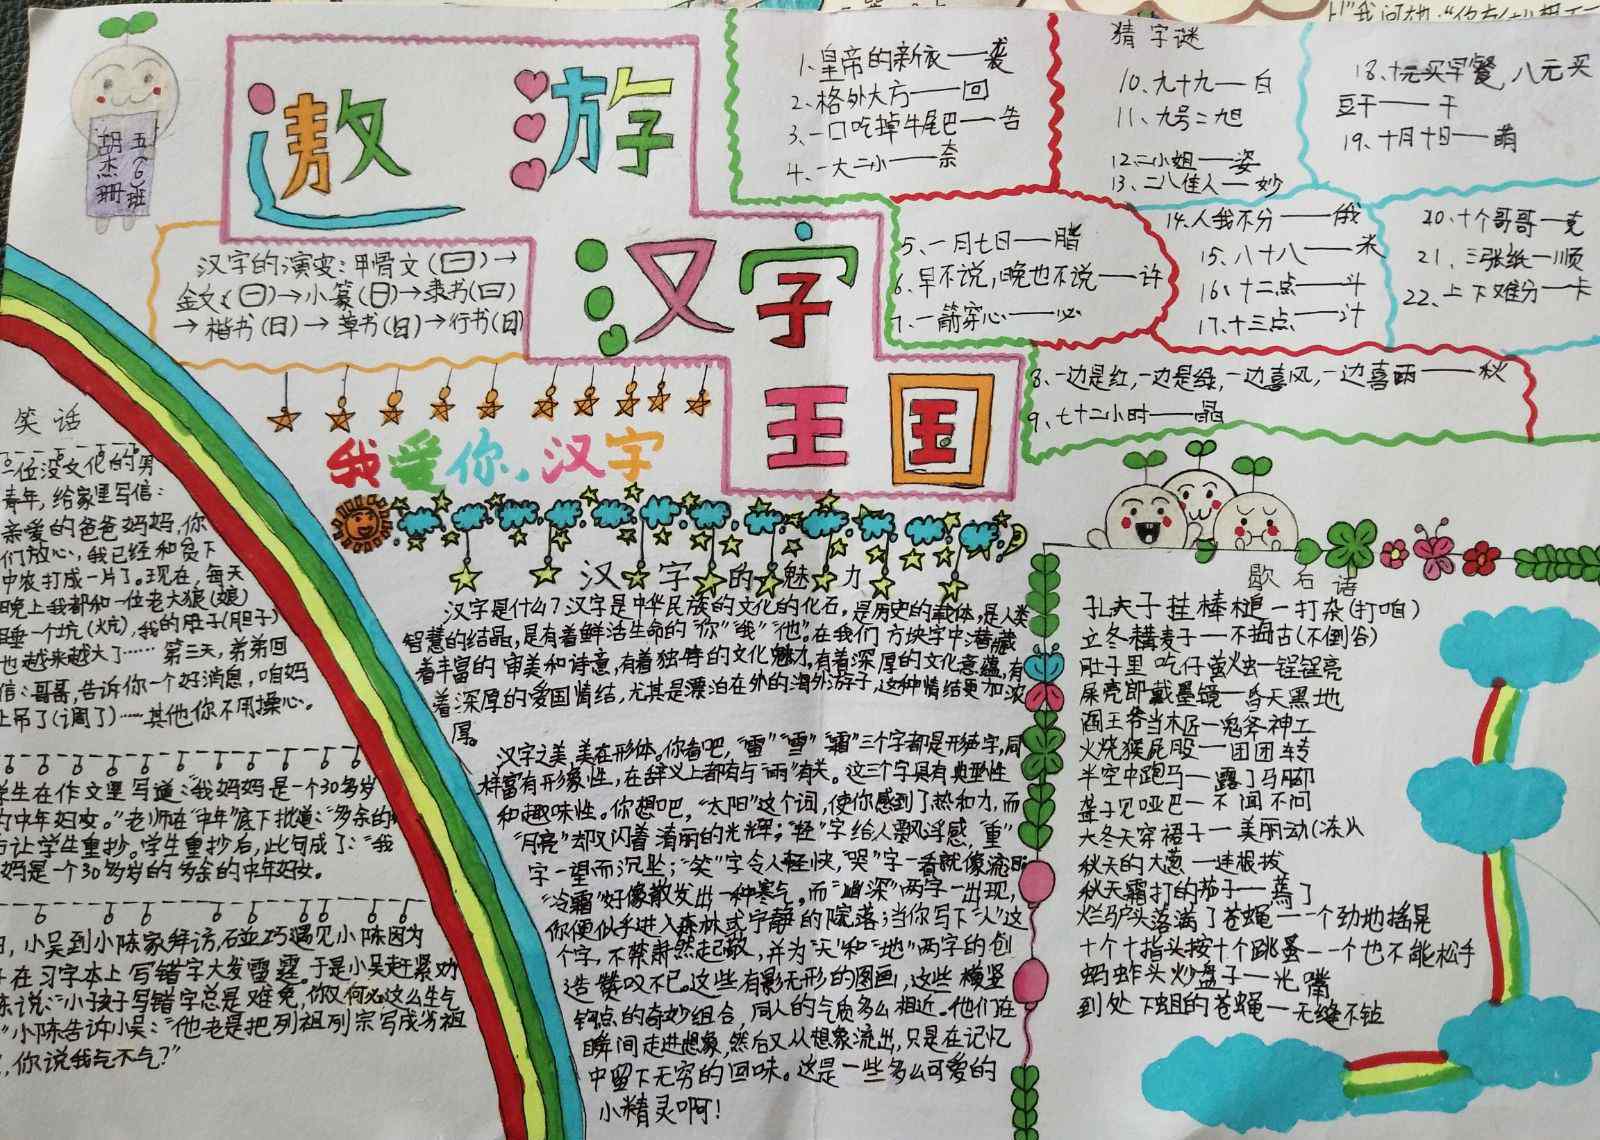 五(6)班
胡杰珊
遨游
汉字
王国
汉字的演变:甲骨文(日)→
金文(日)→小篆(日)→隶书(曰)
→楷书(日)→草书(日)→行书(日)
1、皇帝的新衣——袭
2、格外大方——回
3、一口吃掉牛尾巴——告
4、一大二小——奈
猜字谜
10、九十九——白
11、九号二旭
12、二小姐——姿
13、二八佳人——妙
18、十元买早餐,八元买
豆干——干
19、十月十日——萌
5、一月七日——腊
6、早不说,晚也不说——许
7、一箭穿心——必
14、人我不分——俄
15、八十八——米
16、十二点——斗
17、十三点——汁
20、十个哥哥——克
21、三张纸—顺
22、上下难分——卡
8、一边是红,一边是绿,一边喜风,一边喜雨——秋
9、七十二小时——晶
我爱你,汉字
笑话
一位没文化的男
青年,给家里写信:
亲爱的爸爸妈妈,你
们放心,我已经和贫下
中农打成一片了。现在,每天
晚上我都和一位老大狼(娘)
睡一个坑(炕),我的肚子(胆子)
也越来越大了……第三天,弟弟回
信:哥哥,告诉你一个好消息,咱妈
上吊了(调了)……其他你不用操心。
学生在作文里写道:“我妈妈是一个30多岁
的中年妇女。”老师在“中年”底下批道:“多余的”
让学生重抄。学生重抄后,此句成了:“我
妈是一个30多岁的多余的中年妇女。
,小吴到小陈家拜访,碰巧遇见小陈因为
在习字本上写错字大发雷霆。于是小吴赶紧劝
陈说:“小孩子写错字总是难免,你又何必这么生气
”小陈告诉小吴:“他老是把列祖列宗写成劣祖
,你说我气不气?”
汉字的魅力
汉字是什么?汉字是中华民族的文化的化石,是历史的载体,是人类
智慧的结晶,是有着鲜活生命的“你”“我”“他”。在我们方块字中潜藏
着丰富的审美和诗意,有着独特的文化魅力,有着深厚的文化意蕴,有
着深厚的爱国情结,尤其是漂泊在外的海外游子,这种情结更加浓
厚。
汉字之美,美在形体。你看吧,“雷”“雪”“霜”三个字都是形声字,同
样富有形象性,在辞义上都有与“雨”有关。这三个字具有典型性
和趣味性。你想吧,“太阳”这个词,使你感到了热和力,而
“月亮”却又闪着清丽的光辉;“轻”字给人飘浮感,“重”
字一望而沉坠;“笑”字令人轻快,“哭”字一看就像流泪
“冷霜”好像散发出一种寒气。而“幽深”两字一出现,
你便似乎进入森林或宁静的院落;当你写下“人”这
个字,不禁肃然起敬,并为“天”和“地”两字的创
造赞叹不已。这些有影无形的图画,这些横竖
钩点的奇妙组合,同人的气质多么相近。他们在
瞬间走进想象,然后又从想象流出,只是在记忆
中留下无穷的回味。这是一些多么可爱的
小精灵啊!
歇后语
孔夫子挂棒槌—打杂(打咱)
立冬种麦子—不拥古(不倒谷)
肚子里吃仔萤火虫—锃锃亮
屎壳郎戴墨镜—昏天黑地
阎王爷当木匠—鬼斧神工
火烧猴屁股—团团转
半空中跑马—露了马脚
聋子见哑巴—不闻不问
大冬天穿裙子—美丽动(冻)人
秋天的大葱—连根拔
秋天霜打的茄子—蔫了
烂驴头落满了苍蝇—一个劲地摇晃
十个十指头按十个跳蚤—一个也不能松手
蚂蚱头炒盘子—光嘴
到处下蛆的苍蝇—无缝不钻